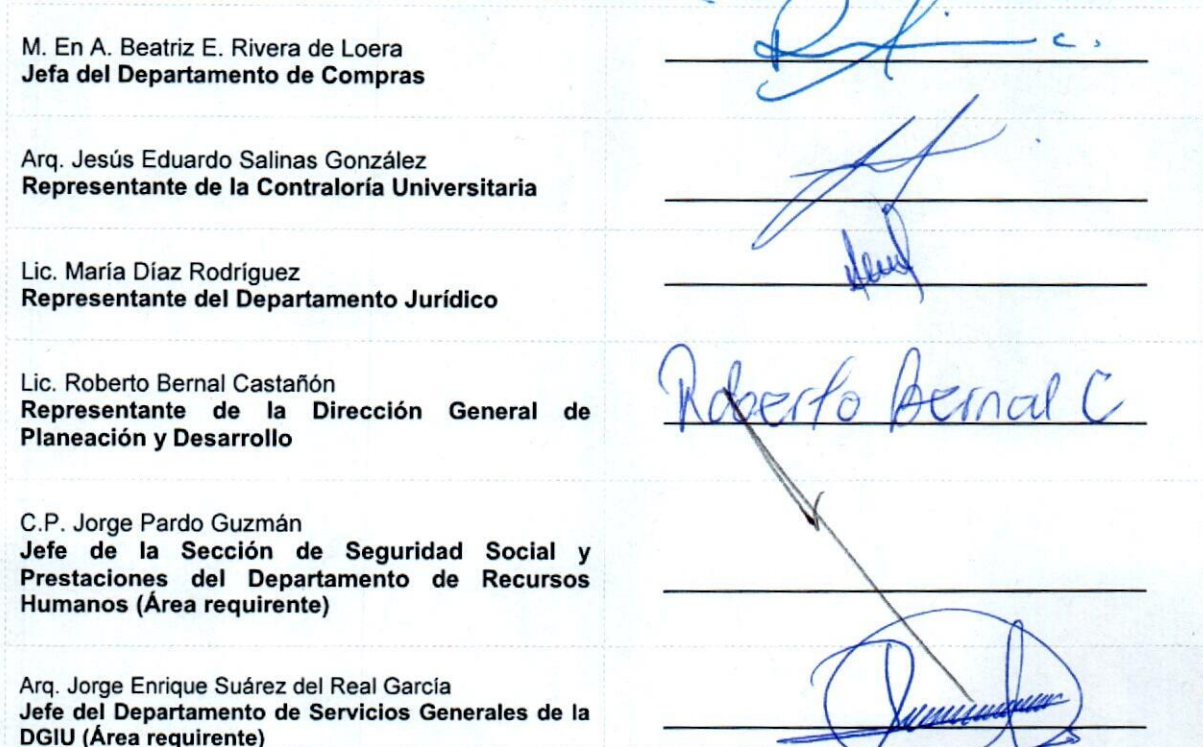 M. En A. Beatriz E. Rivera de Loera
Jefa del Departamento de Compras
Arq. Jesús Eduardo Salinas González
Representante de la Contraloría Universitaria
Lic. María Díaz Rodríguez
Representante del Departamento Jurídico
Lic. Roberto Bernal Castañón
Representante de la Dirección General de
Planeación y Desarrollo
Roberto Bernal C
C.P. Jorge Pardo Guzmán
Jefe de la Sección de Seguridad Social y
Prestaciones del Departamento de Recursos
Humanos (Área requirente)
Arq. Jorge Enrique Suárez del Real García
Jefe del Departamento de Servicios Generales de la
DGIU (Área requirente)